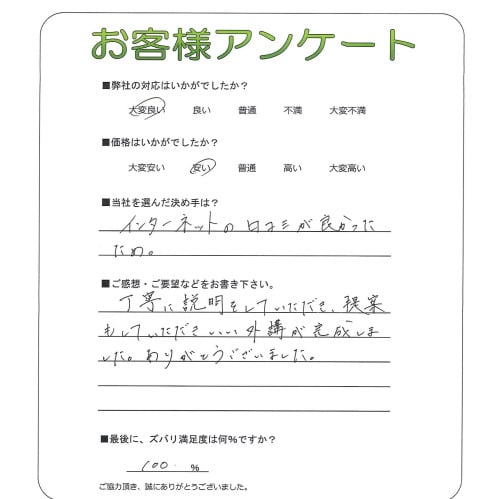 お客様アンケート
■弊社の対応はいかがでしたか？
大変良い 良い 普通 不満 大変不満
■価格はいかがでしたか？
大変安い 安い 普通 高い 大変高い
■当社を選んだ決め手は？
インターネットの口コミが良かった
ため。
■ご感想・ご要望などをお書き下さい。
丁寧に説明をしていただき、提案
もしていただきいい外構が完成しまし
た。ありがとうございました。
■最後に、ズバリ満足度は何%ですか？
100 %
ご協力頂き、誠にありがとうございました。